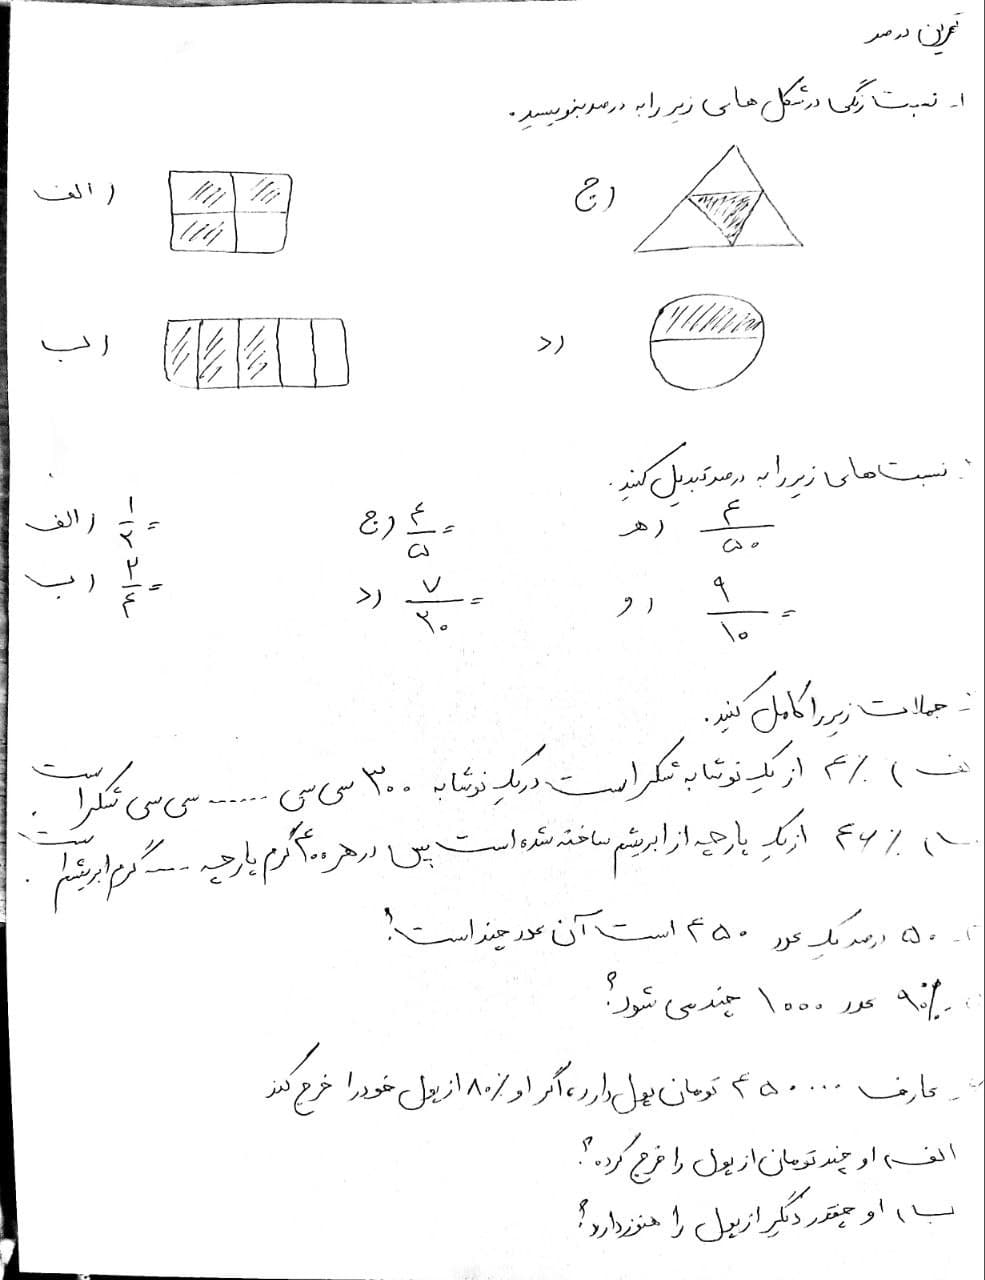 تمرین درصد
۱- نسبت رنگی در شکل های زیر را به درصد بنویسید.
الف) ج)
ب) د)
نسبت های زیر را به درصد تبدیل کنید.
الف) ۱/۲ = ج) ۴/۵ = هـ) ۴/۵۰
ب) ۲/۴ = د) ۷/۲۰ = و) ۹/۱۰ =
جملات زیر را کامل کنید.
الف) ۴٪ از یک نوشابه شکر است در یک نوشابه ۳۰۰ سی سی ...... سی سی شکر است.
ب) ۴۶٪ از یک پارچه از ابریشم ساخته شده است پس در هر ۴۰۰ گرم پارچه ..... گرم ابریشم است.
۵۰ درصد یک عدد ۴۵۰ است آن عدد چند است؟
۹۰٪ عدد ۱۰۰۰ چند می شود؟
عارف ۴۵۰۰۰۰ تومان پول دارد، اگر او ۸۰٪ از پول خود را خرج کند
الف) او چند تومان از پول را خرج کرده؟
ب) او چقدر دیگر از پول را هنوز دارد؟